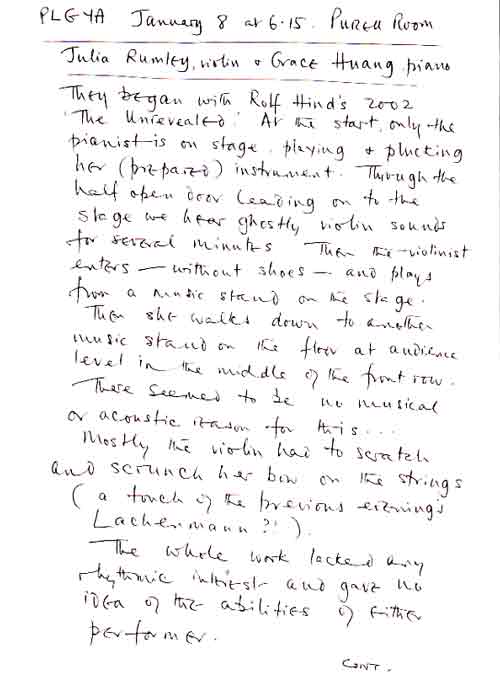 PLGYA January 8 at 6.15. PURCELL ROOM
Julia Rumley, violin & Grace Huang piano
They began with Rolf Hind's 2002
'The Unrevealed'. At the start, only the
pianist is on stage, playing & plucking
her (prepared) instrument. Through the
half open door leading on to the
stage we hear ghostly violin sounds
for several minutes Then the violinist
enters — without shoes — and plays
from a music stand on the stage.
Then she walks down to another
music stand on the floor at audience
level in the middle of the front row.
There seemed to be no musical
or acoustic reason for this...
Mostly the violin had to scratch
and scrunch her bow on the strings
(a touch of the previous evening's
Lachenmann?!).
The whole work lacked any
rhythmic interest and gave no
idea of the abilities of either
performer.
CONT.